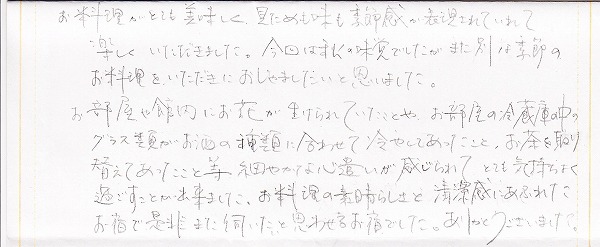 お料理がとても美味しく、見ためも味も季節感が表現されていて
楽しくいただきました。今回は秋の味覚でしたがまた別な季節の
お料理をいただきにおじゃましたいと思いました。
お部屋や館内にお花が生けられていたことや、お部屋の冷蔵庫の中の
グラス類がお酒の種類に合わせて冷やしてあったこと、お茶を取り
替えてあったこと等 細やかな心遣いが感じられて とても気持ちよく
過ごすことが出来ました。お料理の素晴らしさと 清潔感にあふれた
お宿で是非また伺いたいと思わせるお宿でした。ありがとうございました。